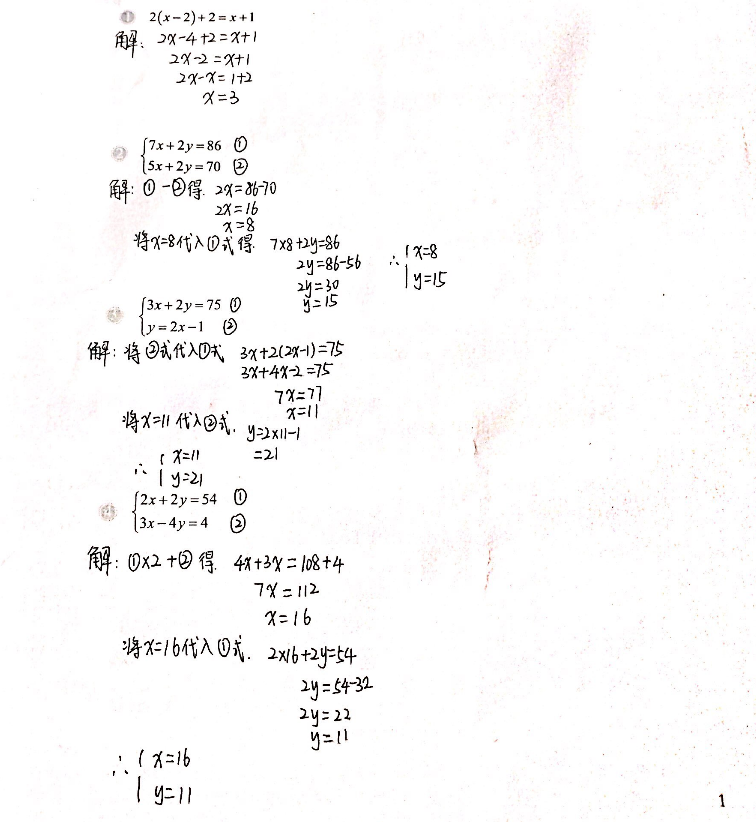 ① 2(x-2)+2=x+1
解: 2x-4+2=x+1
2x-2=x+1
2x-x=1+2
x=3
② {7x+2y=86 ①
5x+2y=70 ②
解: ①-②得. 2x=86-70
2x=16
x=8
将x=8代入①式得. 7×8+2y=86
2y=86-56
2y=30
y=15
∴ {x=8
y=15
③ {3x+2y=75 ①
y=2x-1 ②
解: 将②式代入①式 3x+2(2x-1)=75
3x+4x-2=75
7x=77
x=11
将x=11代入②式. y=2×11-1
=21
∴ {x=11
y=21
④ {2x+2y=54 ①
3x-4y=4 ②
解: ①×2+②得. 4x+3x=108+4
7x=112
x=16
将x=16代入①式. 2×16+2y=54
2y=54-32
2y=22
y=11
∴ {x=16
y=11
1